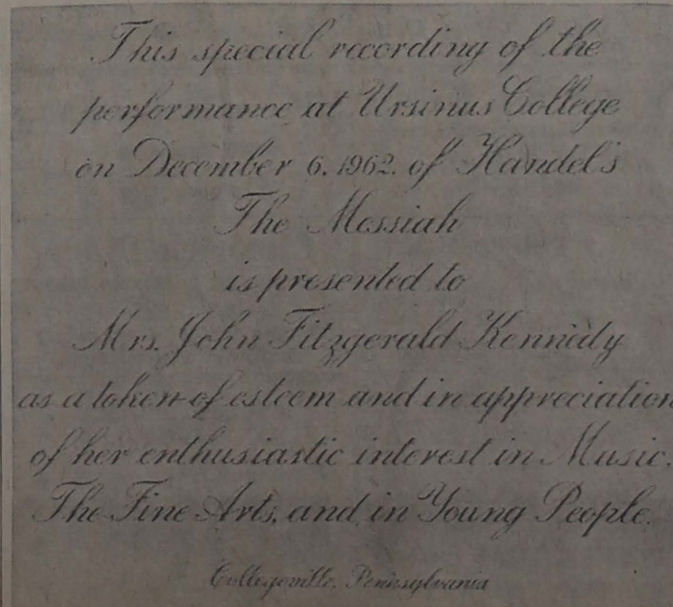 This special recording of the
performance at Ursinus College
on December 6, 1962, of Handel's
The Messiah
is presented to
Mrs. John Fitzgerald Kennedy
as a token of esteem and in appreciation
of her enthusiastic interest in Music,
The Fine Arts, and in Young People.
Collegeville, Pennsylvania